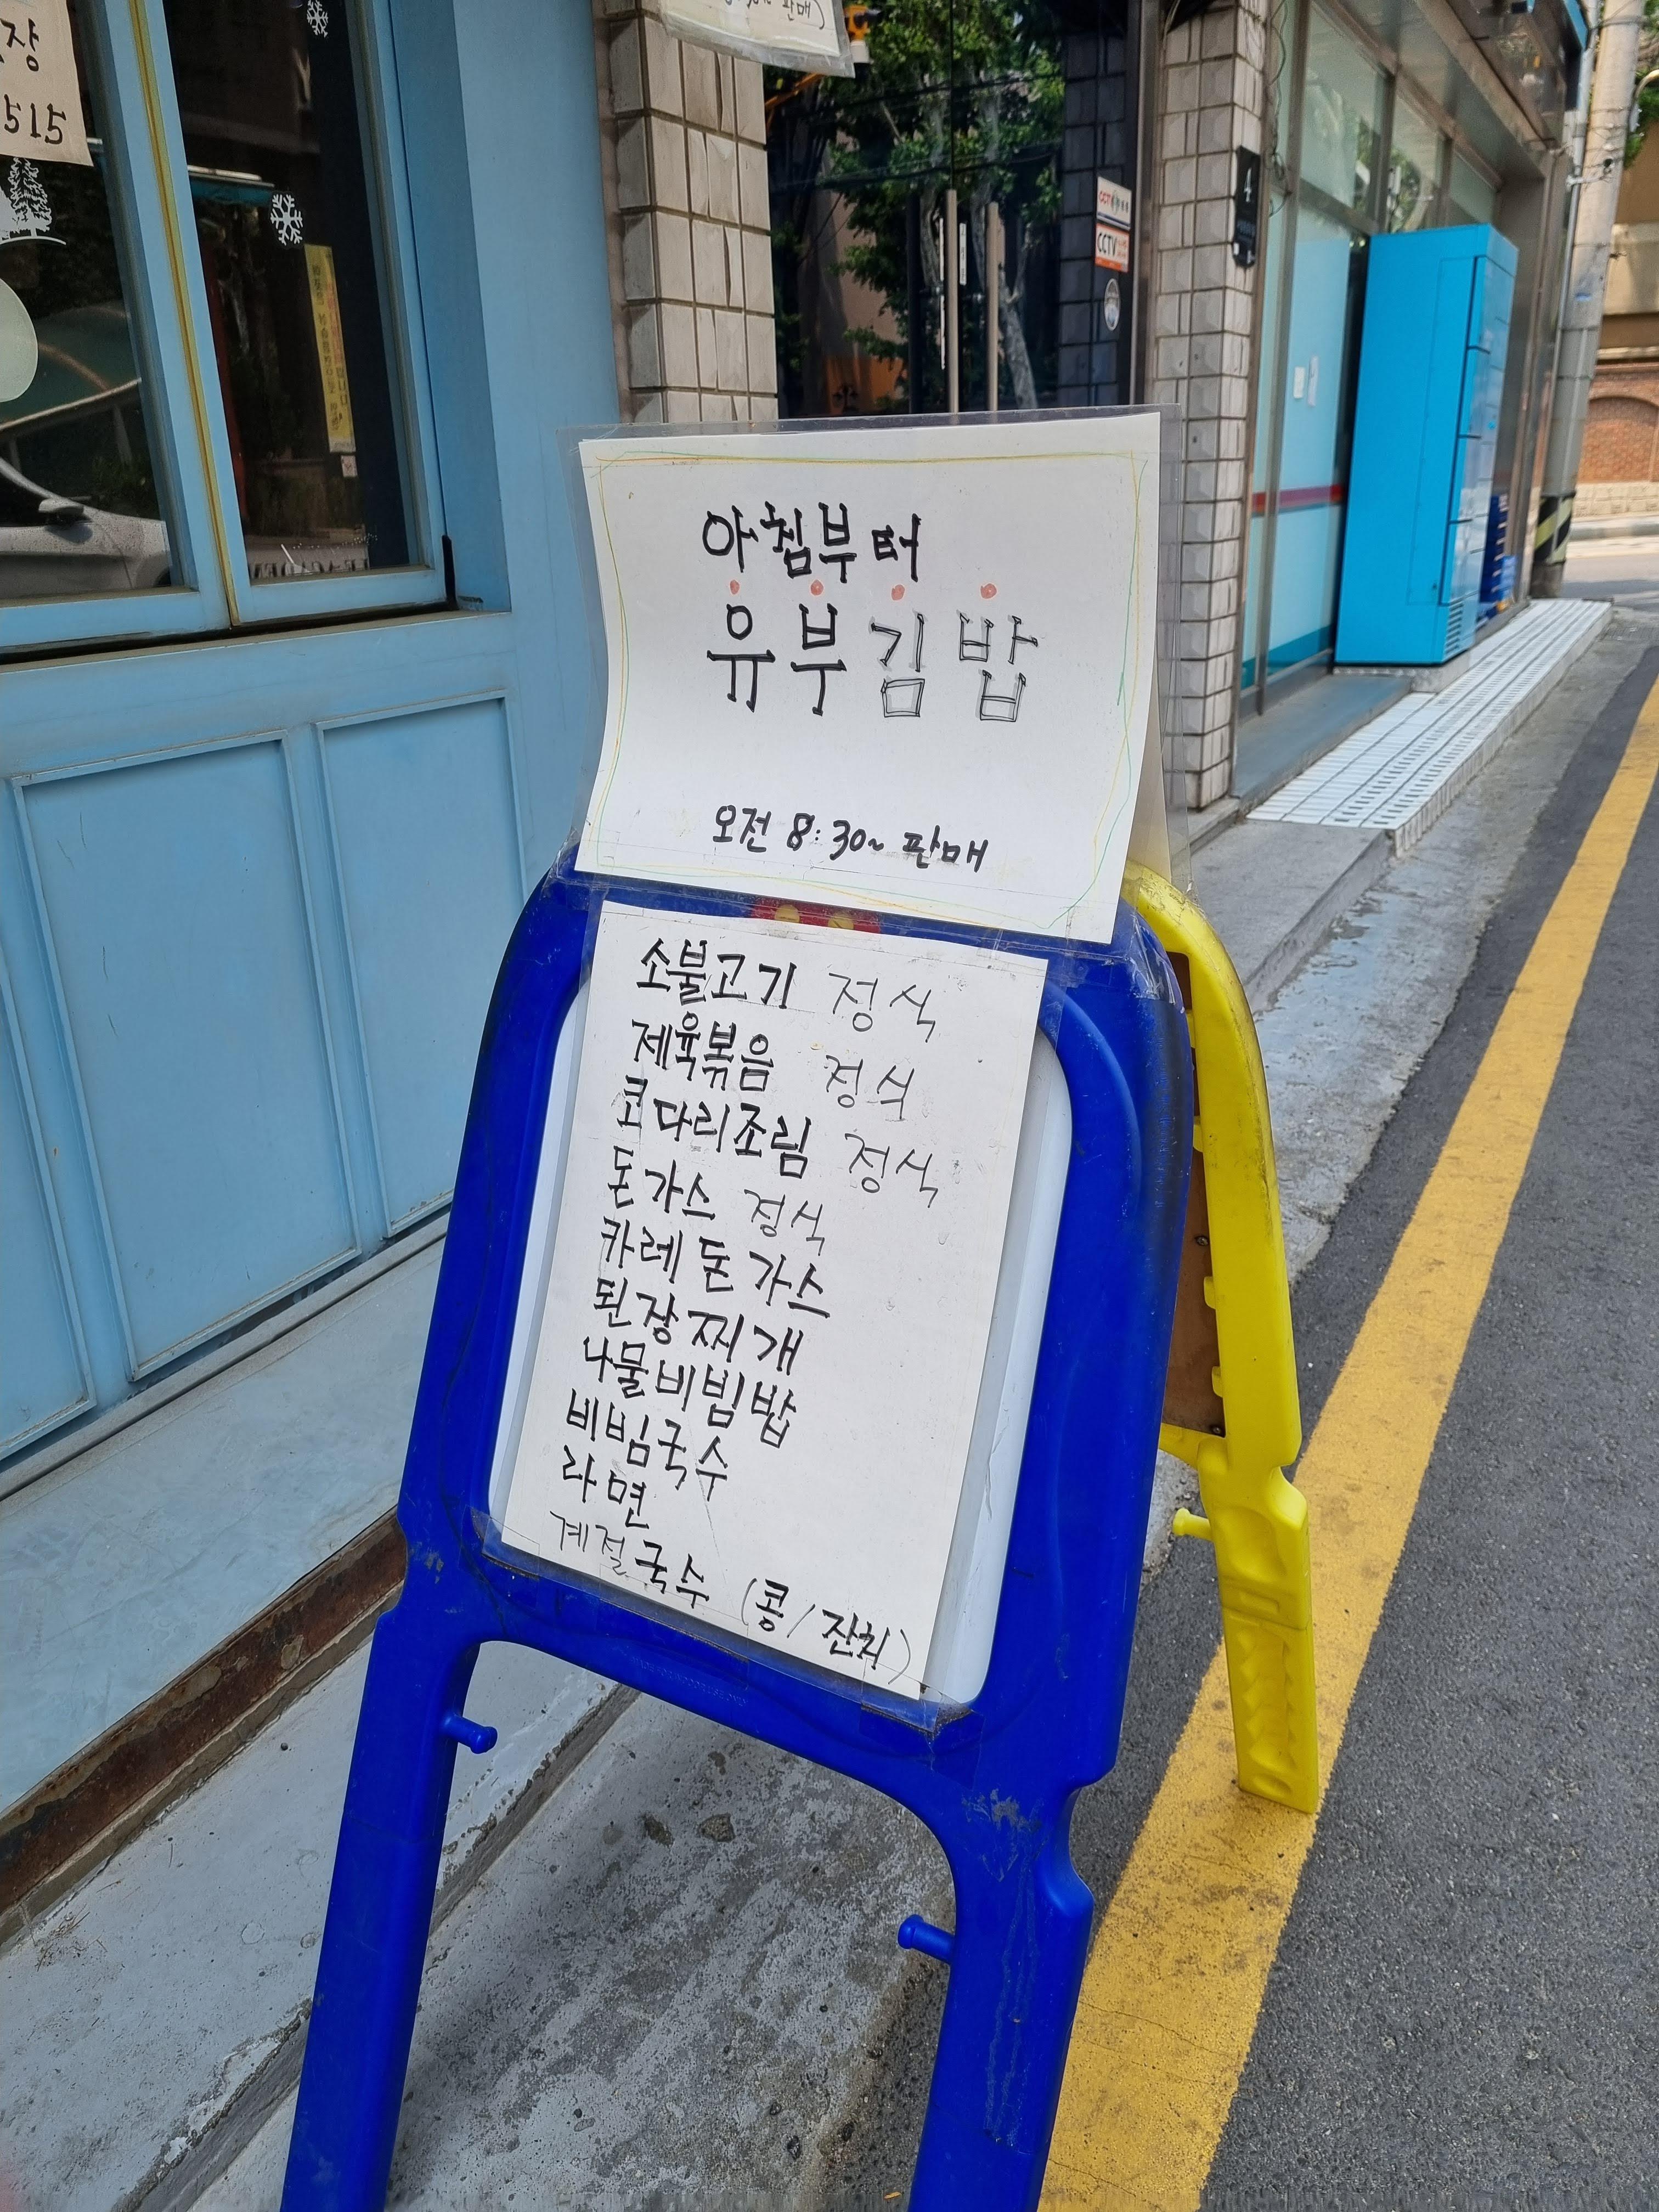 장
515
판매)
CCTV
CCTV
4
아침부터
유부김밥
오전 8:30~ 판매
소불고기 정식
제육볶음 정식
코다리조림 정식
돈가스 정식
카레 돈가스
된장찌개
나물비빔밥
비빔국수
라면
계절국수 (콩/잔치)